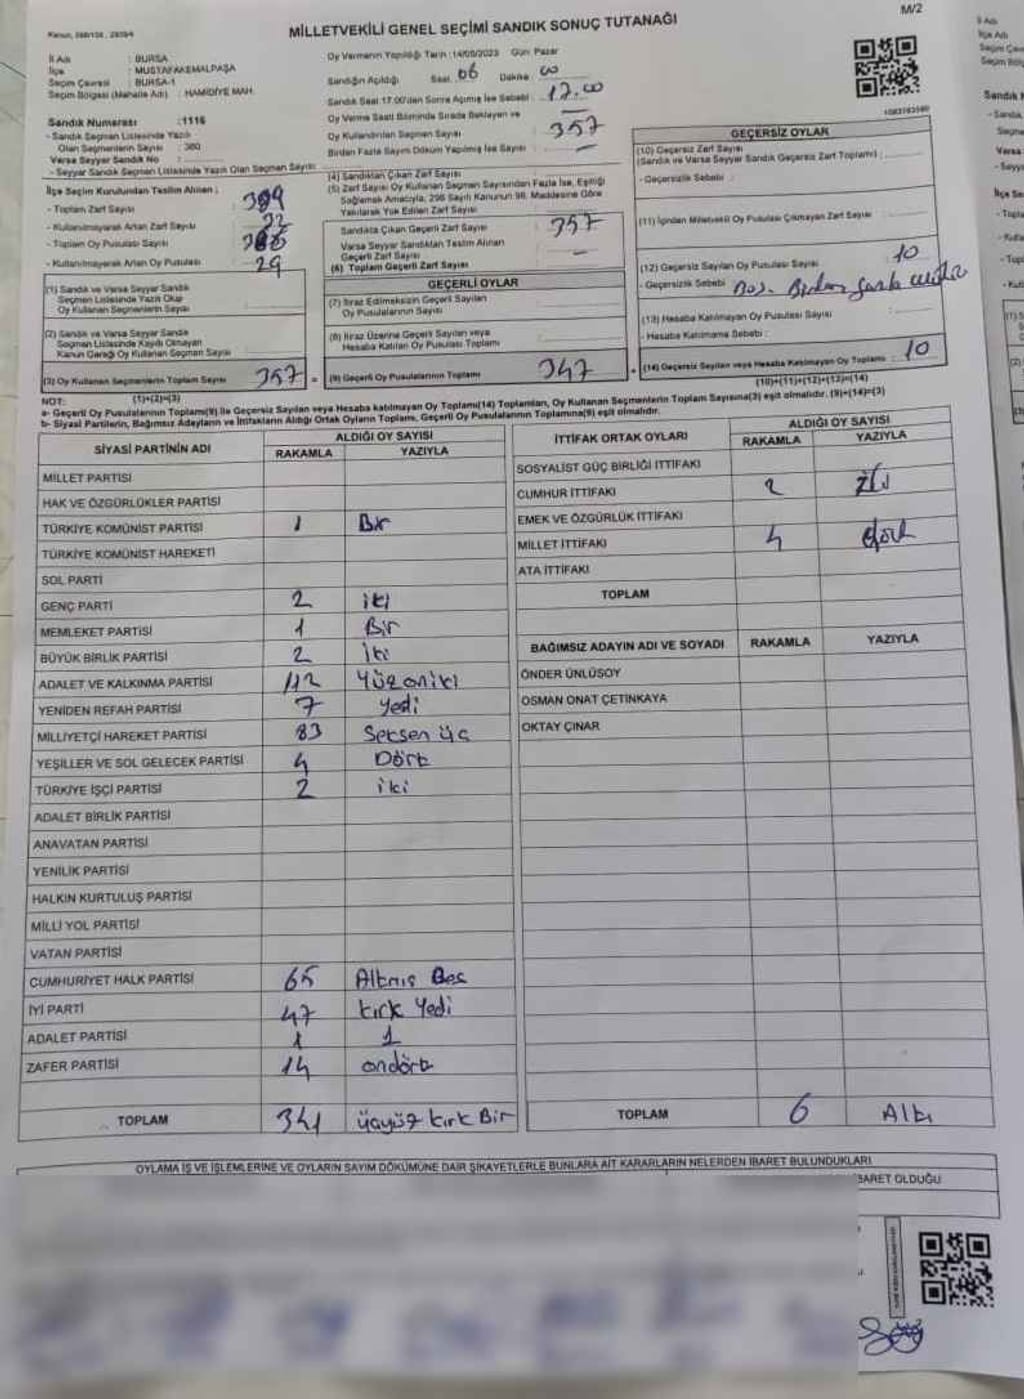 M/2
MİLLETVEKİLİ GENEL SEÇİMİ SANDIK SONUÇ TUTANAĞI
İl Adı : BURSA
İlçe : MUSTAFAKEMALPAŞA
Seçim Çevresi : BURSA-1
Seçim Bölgesi (Mahalle Adı) : HAMİDİYE MAH.
Sandık Numarası :1116
- Sandık Seçmen Listesinde Yazılı
Olan Seçmenlerin Sayısı : 380
Varsa Seyyar Sandık No :
- Seyyar Sandık Seçmen Listesinde Yazılı Olan Seçmen Sayısı :
İlçe Seçim Kurulundan Teslim Alınan :
- Toplam Zarf Sayısı
- Kullanılmayarak Artan Zarf Sayısı 22
- Toplam Oy Pusulası Sayısı
- Kullanılmayarak Artan Oy Pusulası 29
(1) Sandık ve Varsa Seyyar Sandık
Seçmen Listesinde Yazılı Olup
Oy Kullanan Seçmenlerin Sayısı
(2) Sandık ve Varsa Seyyar Sandık
Seçmen Listesinde Kaydı Olmayan
Kanun Gereği Oy Kullanan Seçmen Sayısı
(3) Oy Kullanan Seçmenlerin Toplam Sayısı 357 =
(1)+(2)=(3)
Oy Vermenin Yapıldığı Tarih : 14/05/2023 Gün: Pazar
Sandığın Açıldığı Saat: 06 Dakika: 00
Sandık Saat 17.00'den Sonra Açılmış İse Sebebi : 17.00
Oy Verme Saati Bitiminde Sırada Bekleyen ve
Oy Kullandırılan Seçmen Sayısı : 357
Birden Fazla Sayım Döküm Yapılmış İse Sayısı : —
(4) Sandıktan Çıkan Zarf Sayısı
(5) Zarf Sayısı Oy Kullanan Seçmen Sayısından Fazla İse, Eşitliği
Sağlamak Amacıyla, 298 Sayılı Kanunun 98. Maddesine Göre
Yakılarak Yok Edilen Zarf Sayısı
Sandıkta Çıkan Geçerli Zarf Sayısı : 357
Varsa Seyyar Sandıktan Teslim Alınan
Geçerli Zarf Sayısı : —
(6) Toplam Geçerli Zarf Sayısı
GEÇERLİ OYLAR
(7) İtiraz Edilmeksizin Geçerli Sayılan
Oy Pusulalarının Sayısı
(8) İtiraz Üzerine Geçerli Sayılan veya
Hesaba Katılan Oy Pusulası Toplamı
(9) Geçerli Oy Pusulalarının Toplamı 347 +
GEÇERSİZ OYLAR
(10) Geçersiz Zarf Sayısı
(Sandık ve Varsa Seyyar Sandık Geçersiz Zarf Toplamı) :
- Geçersizlik Sebebi :
(11) İçinden Milletvekili Oy Pusulası Çıkmayan Zarf Sayısı
(12) Geçersiz Sayılan Oy Pusulası Sayısı 10
- Geçersizlik Sebebi
(13) Hesaba Katılmayan Oy Pusulası Sayısı
- Hesaba Katılmama Sebebi :
(14) Geçersiz Sayılan veya Hesaba Katılmayan Oy Toplamı : 10
(10)+(11)+(12)+(13)=(14)
NOT:
a- Geçerli Oy Pusulalarının Toplamı(9) ile Geçersiz Sayılan veya Hesaba katılmayan Oy Toplamı(14) Toplamları, Oy Kullanan Seçmenlerin Toplam Sayısına(3) eşit olmalıdır. (9)+(14)=(3)
b- Siyasi Partilerin, Bağımsız Adayların ve İttifakların Aldığı Ortak Oyların Toplamı, Geçerli Oy Pusulalarının Toplamına(9) eşit olmalıdır.
SİYASİ PARTİNİN ADI ALDIĞI OY SAYISI
RAKAMLA YAZIYLA
MİLLET PARTİSİ
HAK VE ÖZGÜRLÜKLER PARTİSİ
TÜRKİYE KOMÜNİST PARTİSİ 1 Bir
TÜRKİYE KOMÜNİST HAREKETİ
SOL PARTİ
GENÇ PARTİ 2 iki
MEMLEKET PARTİSİ 1 Bir
BÜYÜK BİRLİK PARTİSİ 2 İki
ADALET VE KALKINMA PARTİSİ 112 Yüzoniki
YENİDEN REFAH PARTİSİ 7 yedi
MİLLİYETÇİ HAREKET PARTİSİ 83 Seksen üç
YEŞİLLER VE SOL GELECEK PARTİSİ 4 Dört
TÜRKİYE İŞÇİ PARTİSİ 2 iki
ADALET BİRLİK PARTİSİ
ANAVATAN PARTİSİ
YENİLİK PARTİSİ
HALKIN KURTULUŞ PARTİSİ
MİLLİ YOL PARTİSİ
VATAN PARTİSİ
CUMHURİYET HALK PARTİSİ 65 Altmış Beş
İYİ PARTİ 47 kırk Yedi
ADALET PARTİSİ 1 1
ZAFER PARTİSİ 14 ondört
TOPLAM 341 üçyüz kırk Bir
İTTİFAK ORTAK OYLARI ALDIĞI OY SAYISI
RAKAMLA YAZIYLA
SOSYALİST GÜÇ BİRLİĞİ İTTİFAKI
CUMHUR İTTİFAKI 2 İki
EMEK VE ÖZGÜRLÜK İTTİFAKI
MİLLET İTTİFAKI 4 dört
ATA İTTİFAKI
TOPLAM
BAĞIMSIZ ADAYIN ADI VE SOYADI RAKAMLA YAZIYLA
ÖNDER ÜNLÜSOY
OSMAN ONAT ÇETİNKAYA
OKTAY ÇINAR
TOPLAM 6 Altı
OYLAMA İŞ VE İŞLEMLERİNE VE OYLARIN SAYIM DÖKÜMÜNE DAİR ŞİKAYETLERLE BUNLARA AİT KARARLARIN NELERDEN İBARET BULUNDUKLARI
BARET OLDUĞU